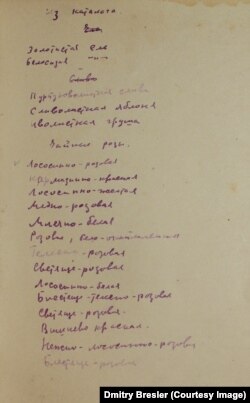 Из каталога.
Ель
Золотистая ель
Белесизая -"-
Слива
Пурпуроволистная слива
Сливолистная яблоня
Иволистная груша
Чайная роза.
v Лососинно-розовая
Карминно-красная
Лососинно-желтая
Медно-розовая
Млечно-белая
Розовая,
Телесно-розовая
Светяще-розовая
Лососинно-белая
Блестяще-темно-розовая
Светяще-розовая.
Вишнево красная.
Нежно-лососинно-розовая
Блестяще-розовая
Dmitry Bresler (Courtesy Image)